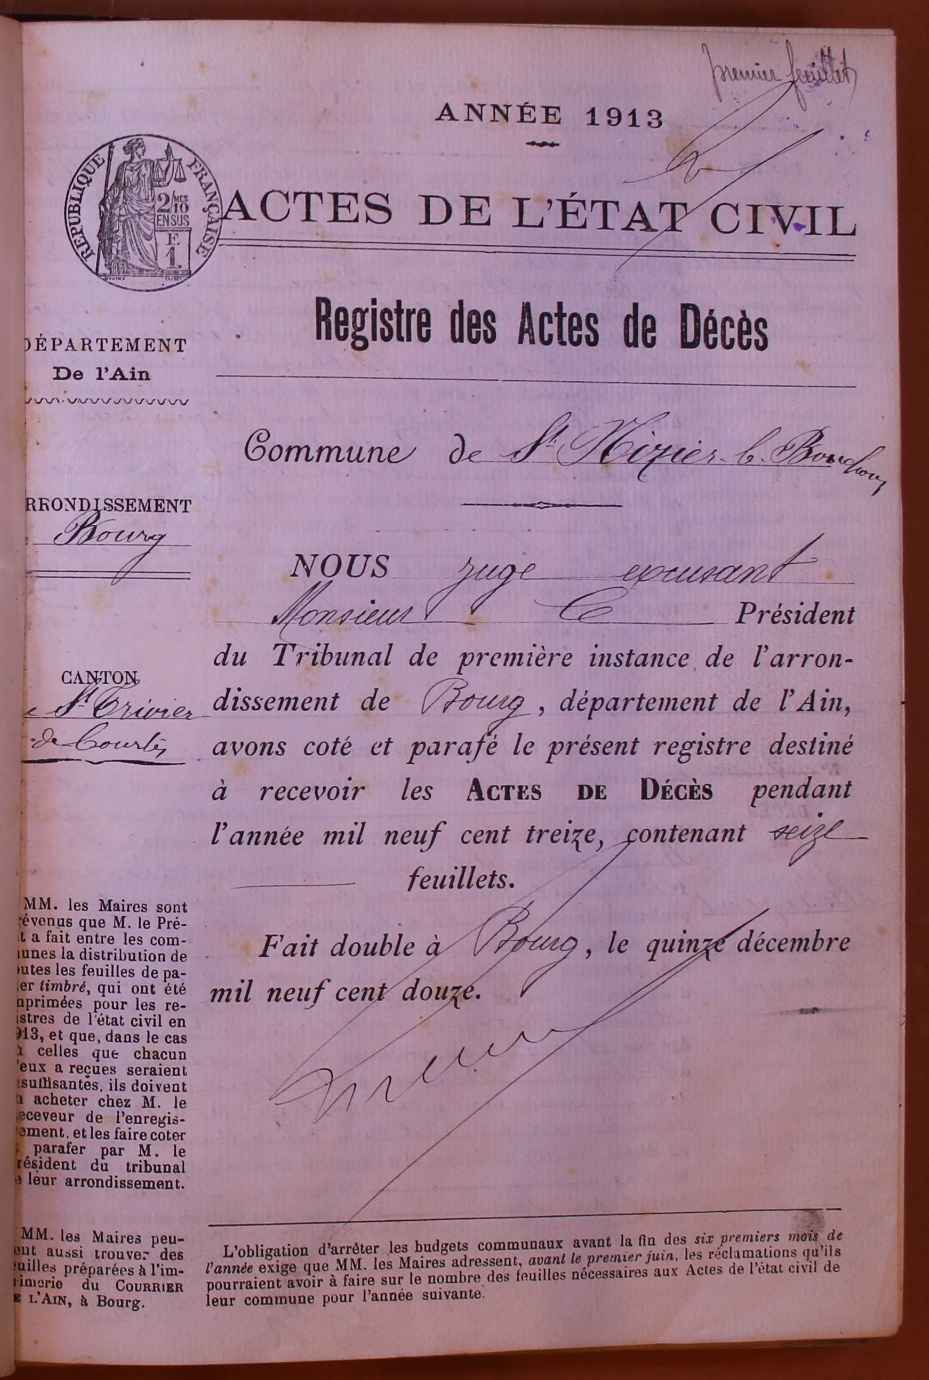 premier feuillet
ANNÉE 1913
RÉPUBLIQUE FRANÇAISE
2/10
EN SUS
F.
1.
ACTES DE L'ÉTAT CIVIL
Registre des Actes de Décès
DÉPARTEMENT
De l'Ain
Commune de St Nizier-le-Bouchoux
RRONDISSEMENT
Bourg
NOUS juge excusant
Monsieur Président
du Tribunal de première instance de l'arron-
CANTON
St Trivier
de Courtes
dissement de Bourg, département de l'Ain,
avons coté et parafé le présent registre destiné
à recevoir les ACTES DE DÉCÈS pendant
l'année mil neuf cent treize, contenant seize
feuillets.
Fait double à Bourg, le quinze décembre
mil neuf cent douze.
MM. les Maires sont
révenus que M. le Pré-
t a fait entre les com-
unes la distribution de
utes les feuilles de pa-
er timbré, qui ont été
mprimées pour les re-
istres de l'état civil en
913, et que, dans le cas
celles que chacun
'eux a reçues seraient
suffisantes, ils doivent
acheter chez M. le
eceveur de l'enregis-
ement, et les faire coter
parafer par M. le
résident du tribunal
leur arrondissement.
MM. les Maires peu-
ent aussi trouver des
euilles préparées à l'im-
rimerie du COURRIER
E L'AIN, à Bourg.
L'obligation d'arrêter les budgets communaux avant la fin des six premiers mois de
l'année exige que MM. les Maires adressent, avant le premier juin, les réclamations qu'ils
pourraient avoir à faire sur le nombre des feuilles nécessaires aux Actes de l'état civil de
leur commune pour l'année suivante.